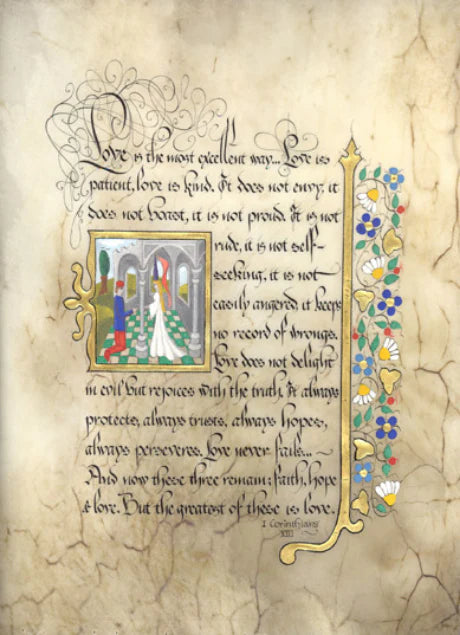 Love is the most excellent way... Love is
patient, love is kind. It does not envy, it
does not boast, it is not proud. It is not
rude, it is not self-
seeking, it is not
easily angered, it keeps
no record of wrongs.
Love does not delight
in evil but rejoices with the truth. It always
protects, always trusts, always hopes,
always perseveres. Love never fails... ~
And now these three remain: faith, hope
& love. But the greatest of these is love.
I Corinthians
XIII